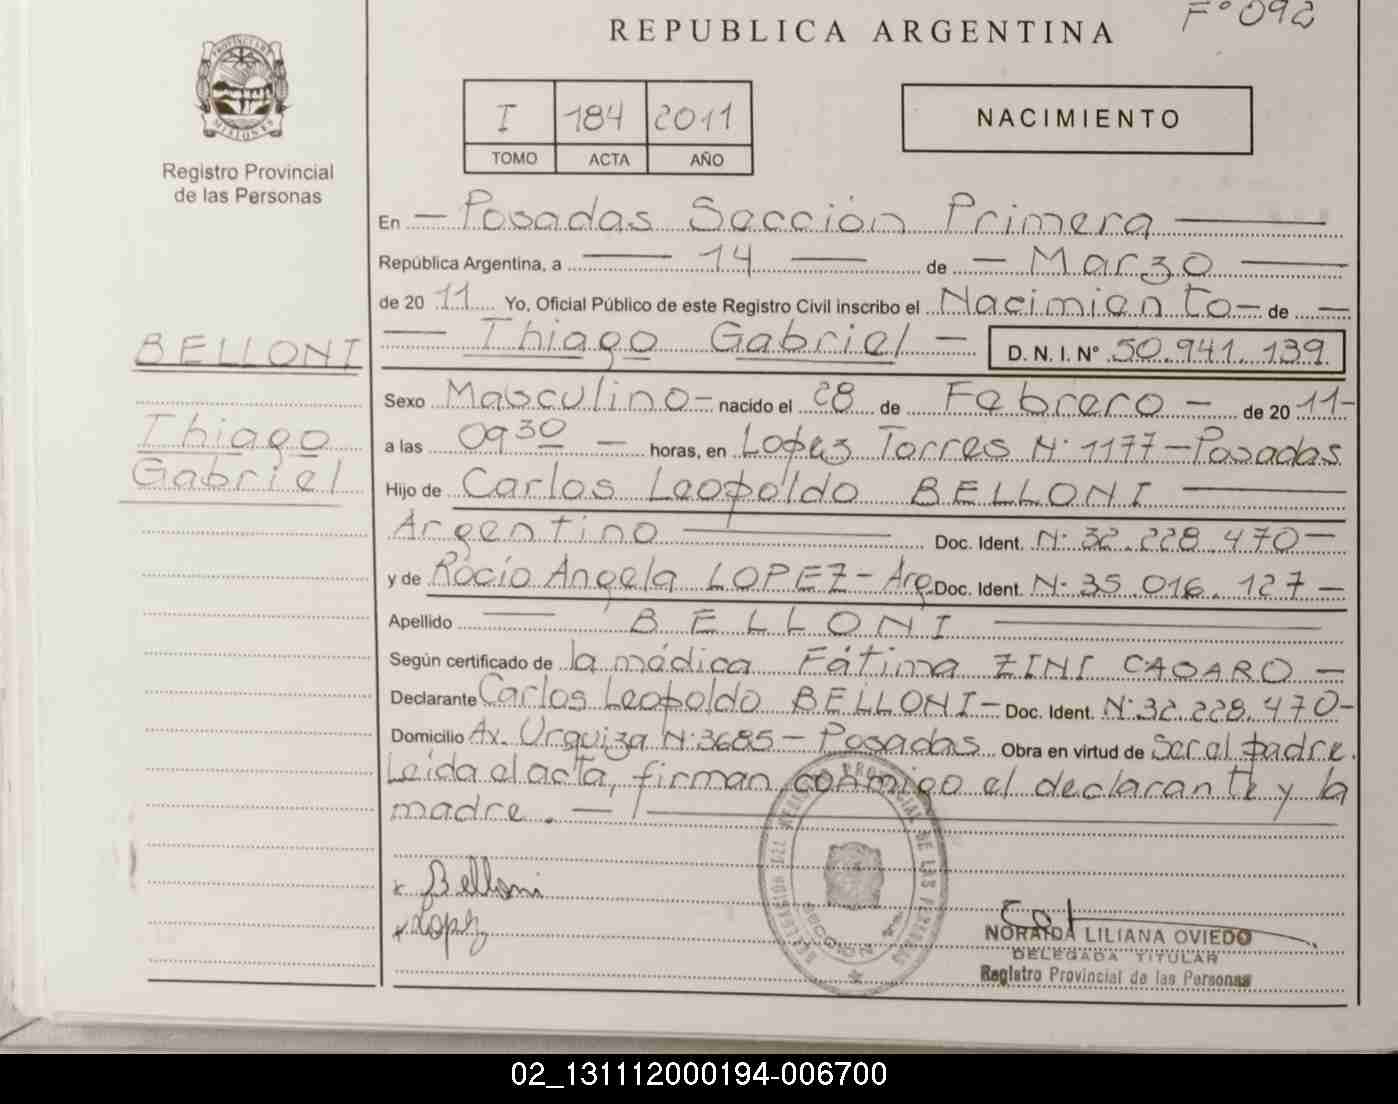 REPUBLICA ARGENTINA
F° 092
PROVINCIA DE MISIONES
Registro Provincial
de las Personas
I 184 2011
TOMO ACTA AÑO
NACIMIENTO
En — Posadas Sección Primera —
República Argentina, a — 14 — de — Marzo —
de 2011 Yo, Oficial Público de este Registro Civil inscribo el Nacimiento — de —
— Thiago Gabriel — D. N. I. N° 50.941.139
BELLONI
Thiago
Gabriel
Sexo Masculino — nacido el 28 de Febrero — de 2011 —
a las 09 30 — horas, en Lopez Torres N° 1177 — Posadas
Hijo de Carlos Leopoldo BELLONI —
Argentino — Doc. Ident. N° 32.228.470 —
y de Rocío Angela LOPEZ — Arg. Doc. Ident. N° 35.016.127 —
Apellido — BELLONI —
Según certificado de la médica Fátima ZINI CAOARO —
Declarante Carlos Leopoldo BELLONI — Doc. Ident. N° 32.228.470 —
Domicilio Av. Urquiza N° 3685 — Posadas Obra en virtud de ser el padre.
Leída el acta, firman conmigo el declarante y la
madre. —
x Belloni
x Lopez
DELEGACIÓN DEL REGISTRO PROVINCIAL DE LAS PERSONAS
SECCION 1ra
NORAIDA LILIANA OVIEDO
DELEGADA TITULAR
Registro Provincial de las Personas
02_131112000194-006700